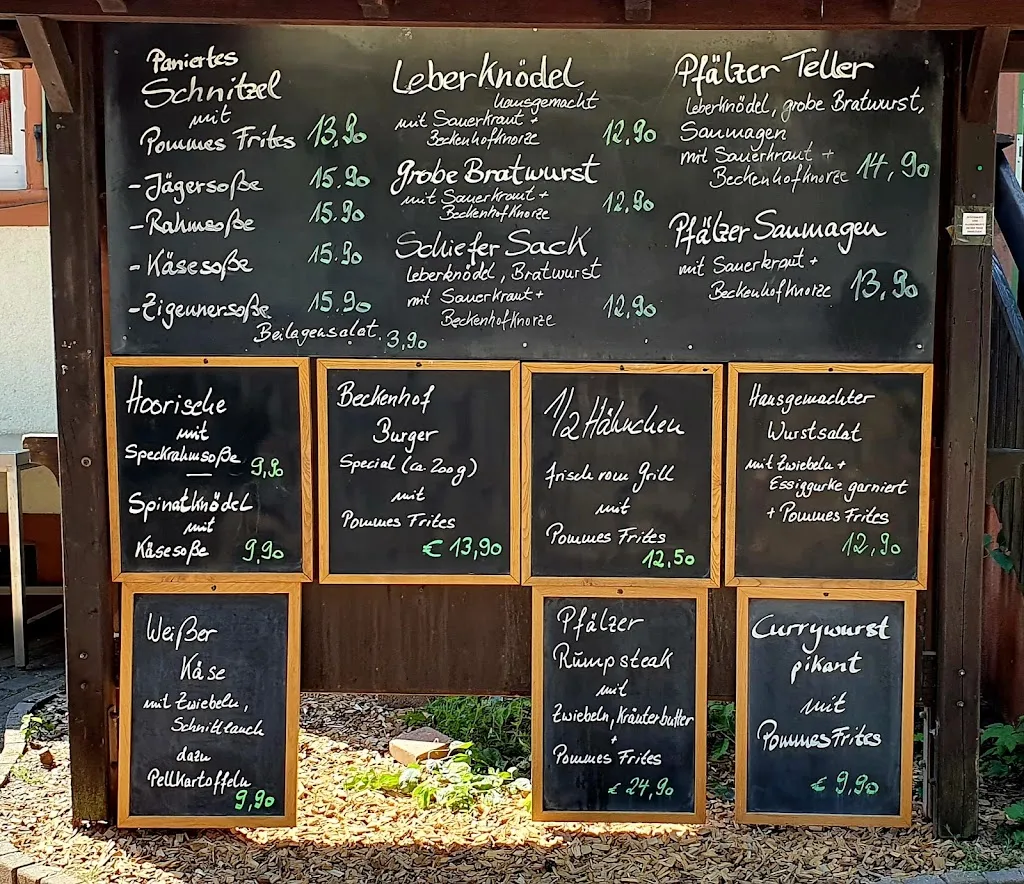 Paniertes
Schnitzel
mit
Pommes Frites 13,90
-Jägersoße 15.90
-Rahmsoße 15.90
-Käsesoße 15.90
-Zigeunersoße 15.90
Beilagensalat. 3,90
Leberknödel
hausgemacht
mit Sauerkraut +
Beckenhofknorze 12,90
grobe Bratwurst
mit Sauerkraut +
Beckenhofknorze 12,90
Schiefer Sack
Leberknödel, Bratwurst
mit Sauerkraut +
Beckenhofknorze 12,90
Pfälzer Teller
Leberknödel, grobe Bratwurst,
Saumagen
mit Sauerkraut +
Beckenhofknorze 14,90
Pfälzer Saumagen
mit Sauerkraut +
Beckenhofknorze 13,90
Hoorische
mit
Speckrahmsoße 9,90
Spinatknödel
mit
Käsesoße 9,90
Beckenhof
Burger
Special (ca. 200g)
mit
Pommes Frites
€ 13,90
1/2 Hähnchen
frisch vom Grill
mit
Pommes Frites
12,50
Hausgemachter
Wurstsalat
mit Zwiebeln +
Essiggurke garniert
+ Pommes Frites
12,90
Weißer
Käse
mit Zwiebeln,
Schnittlauch
dazu
Pellkartoffeln
9,90
Pfälzer
Rumpsteak
mit
Zwiebeln, Kräuterbutter
+
Pommes Frites
€ 24,90
Currywurst
pikant
mit
Pommes Frites
€ 9,90